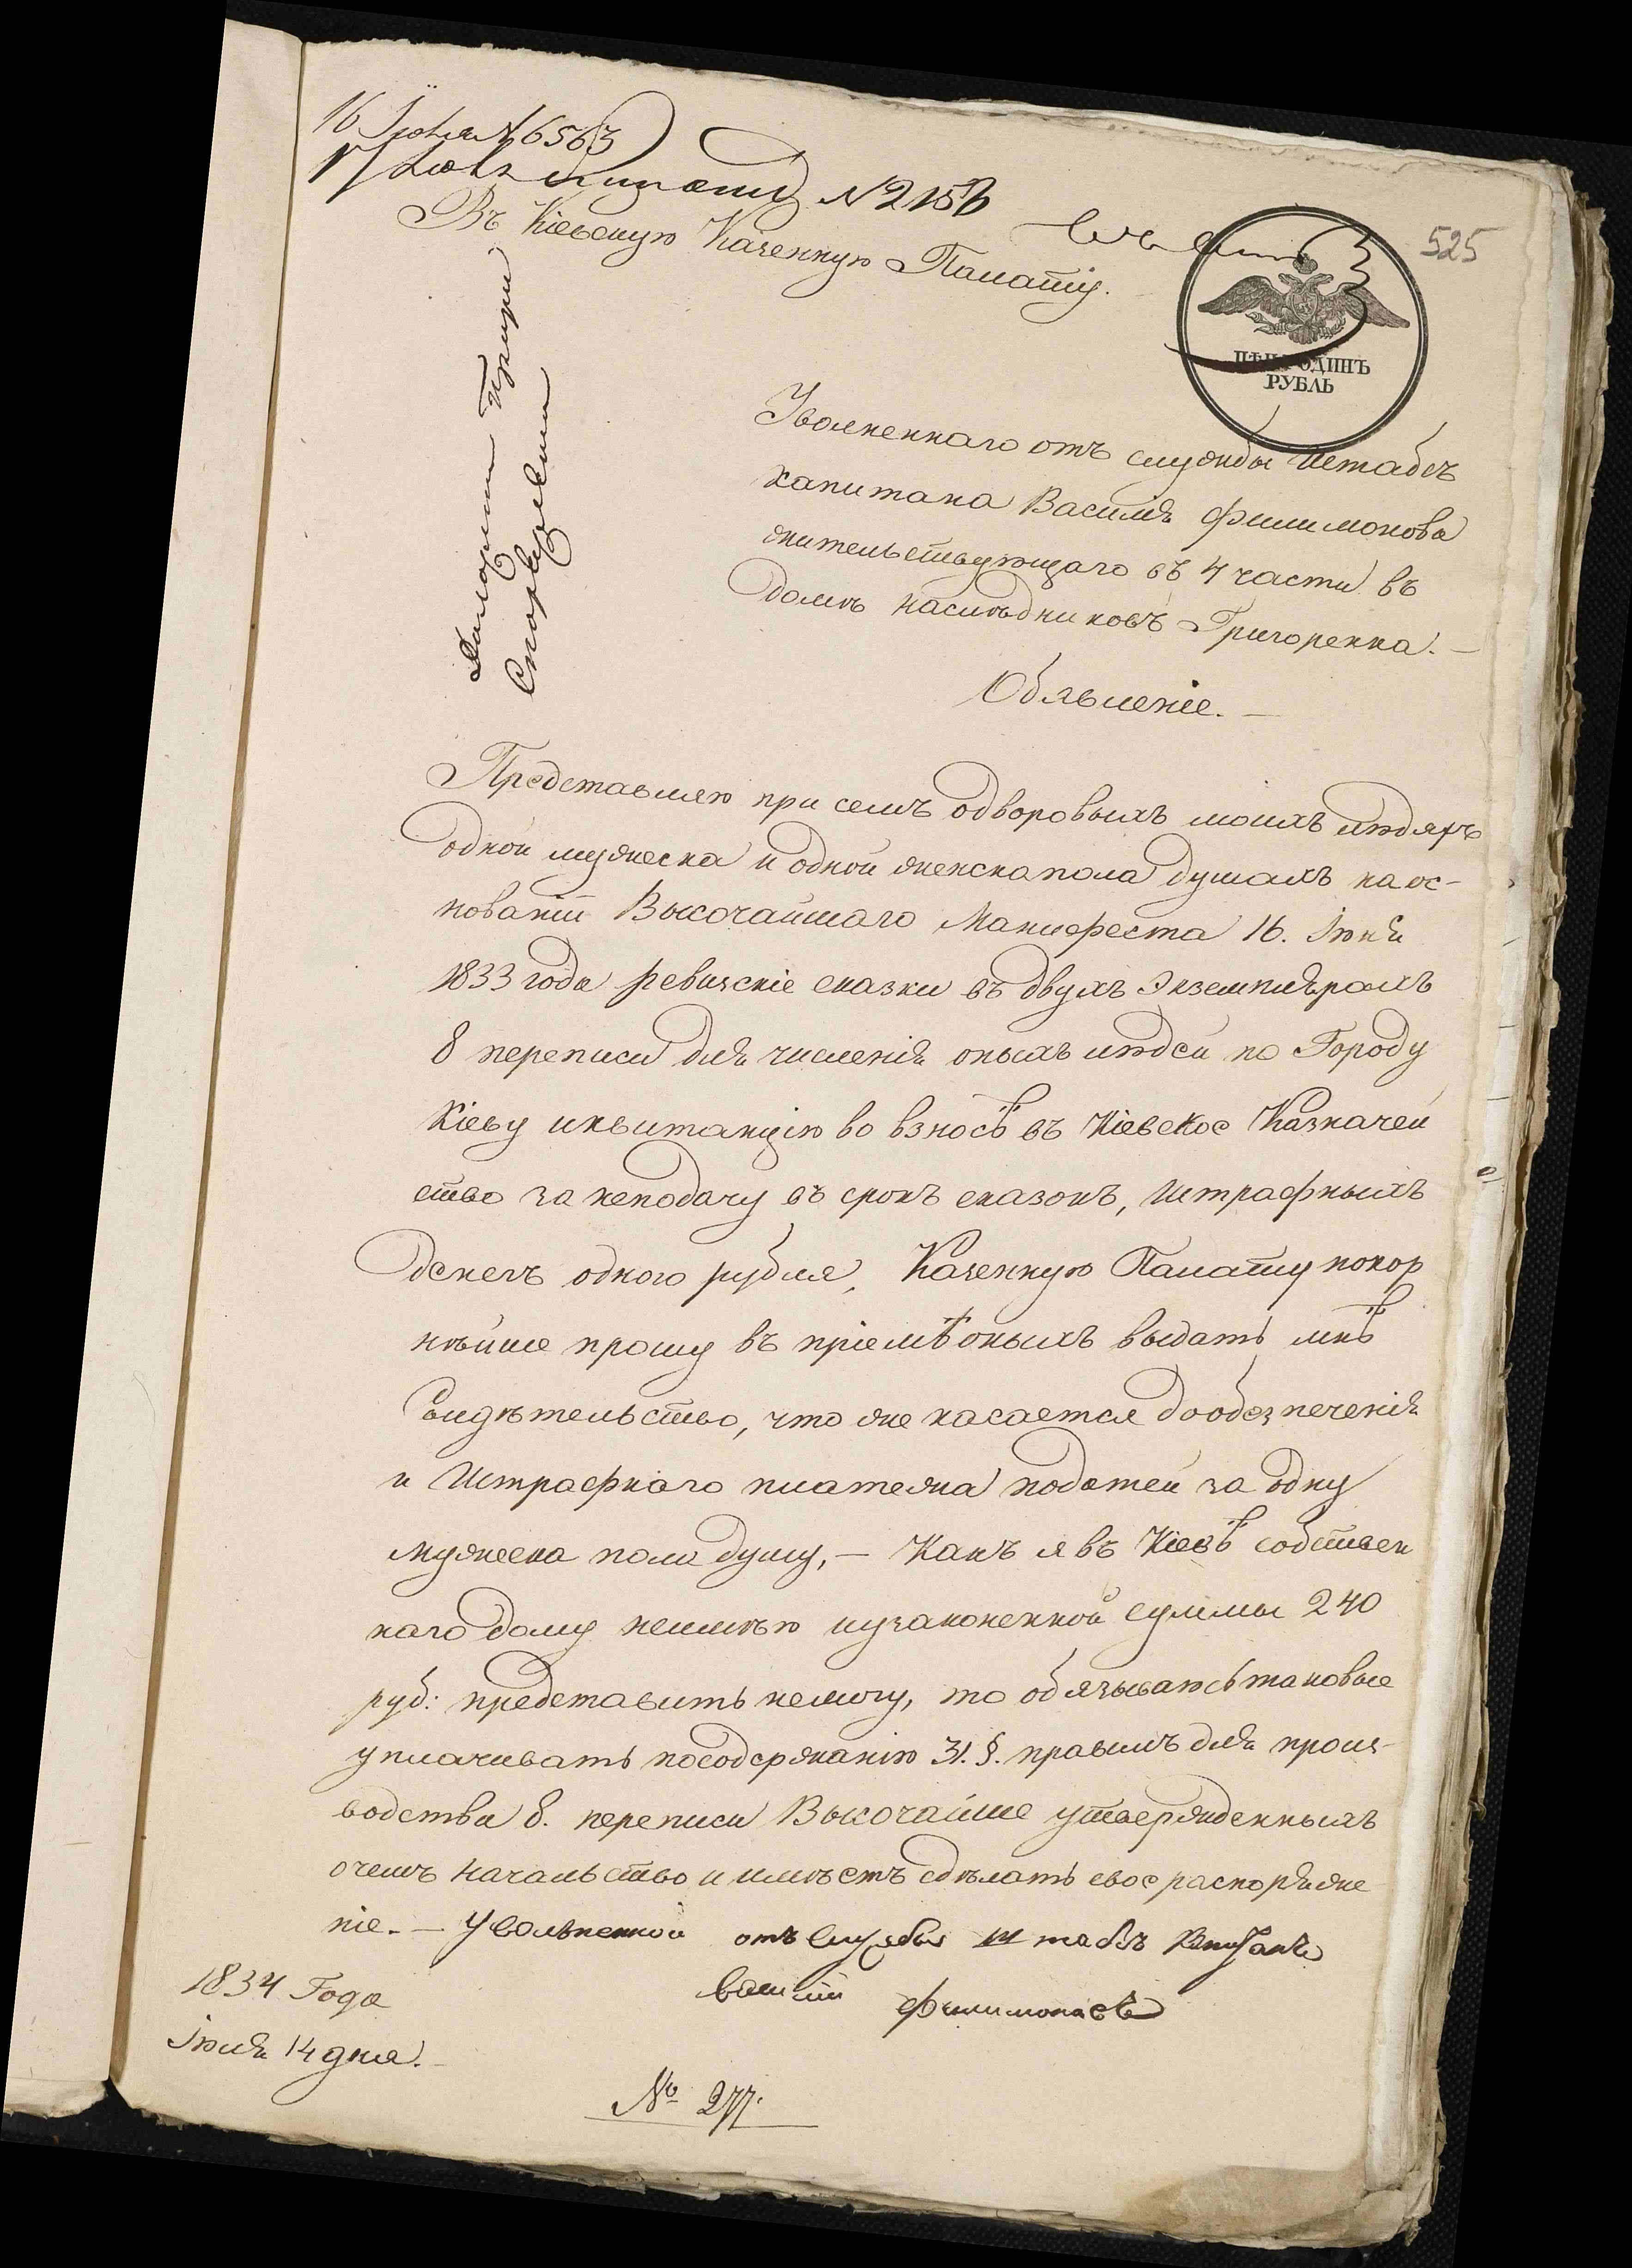 16 Іюля № 6563
№ 2156
Въ Кіевскую Казенную Палату.
525
ЦѢНА ОДИНЪ
РУБЛЬ
Уволненнаго отъ службы Штабсъ
капитана Василія Филимонова
жительствующаго въ 4 части въ
домѣ наслѣдниковъ Григоренка. —
Обявленіе. —
Представляю при семъ одворовыхъ моихъ людяхъ
одной мужеска и одной женска пола душахъ на ос-
нованіи Высочайшаго Манифеста 16. Іюня
1833 года ревизскіе сказки въ двухъ Экземплярахъ
8 переписи для численія оныхъ людей по Городу
Кіеву и квитанцію во взносѣ въ Кіевское Казначей
ство за неподачу въ срокъ сказокъ, Штрафныхъ
денегъ одного рубля, Казенную Палату покор
нѣйше прошу въ пріемѣ оныхъ выдать мнѣ
Свидѣтельство, что же касается до обезпеченія
и Штрафнаго платежа податей за одну
мужеска пола душу, — Какъ я въ Кіевѣ собствен
наго дому неимѣю и узаконенной суммы 240
руб: представить немогу, то обязываюсь таковые
уплачивать посодержанію 31. §. правилъ для произ-
водства 8. переписи Высочайше утвержденныхъ
о чемъ начальство и имѣетъ сдѣлать свое распоряже
ніе. — Уволъненной отъ Службы штабсъ Капитанъ
Василій Филимоновъ
1834 Года
Іюля 14 дня.
№ 277.